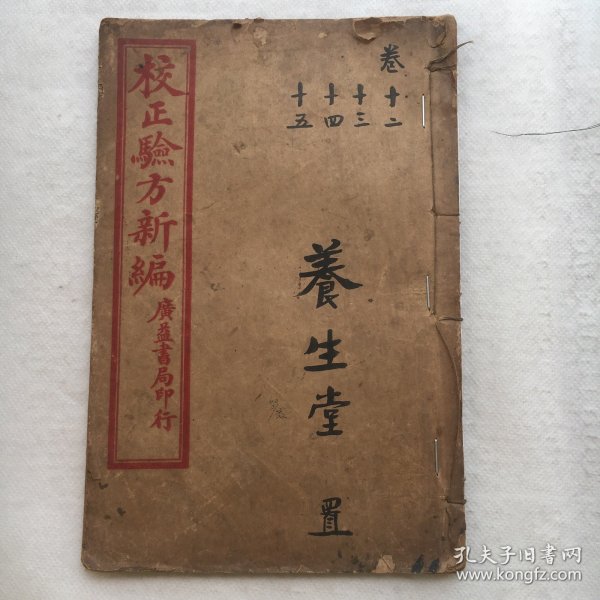 卷
十二
十三
十四
十五
養生堂 置
校正驗方新編
廣益書局印行
孔夫子旧书网
www.kongfz.com